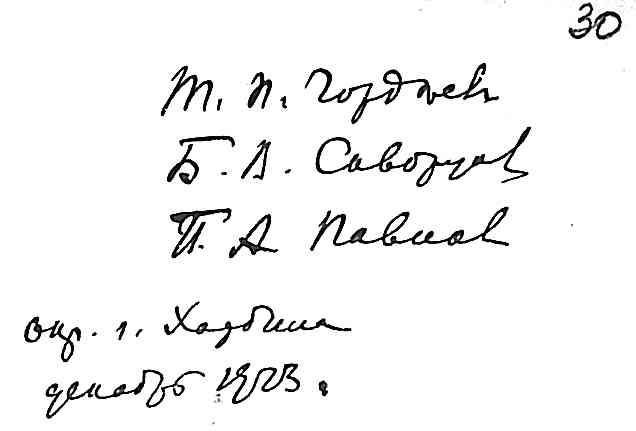 30
Т. П. Гордѣев
Б. В. Скворцов
П. А. Павлов
окр. г. Харбина
декабрь 1923 г.